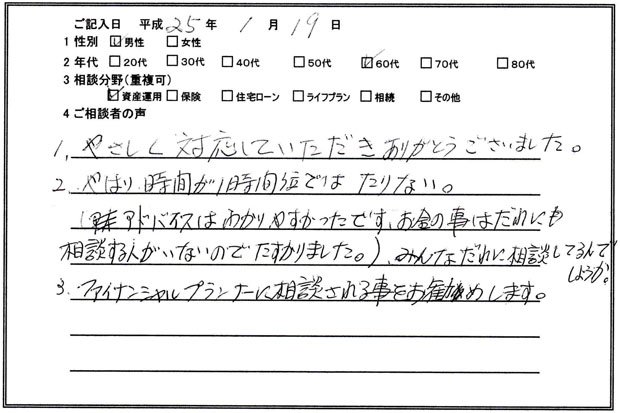 ご記入日 平成 25 年 1 月 19 日
1 性別 ☑男性 □女性
2 年代 □20代 □30代 □40代 □50代 ☑60代 □70代 □80代
3 相談分野(重複可)
☑資産運用 □保険 □住宅ローン □ライフプラン □相続 □その他
4 ご相談者の声
1、やさしく対応していただきありがとうございました。
2、やはり時間が1時間位ではたりない。
アドバイスはわかりやすかったです、お金の事はだれにも
相談する人がいないのでたすかりました。)、みんなだれに相談してるんで
しょうか。
3、ファイナンシャルプランナーに相談される事をお勧めします。